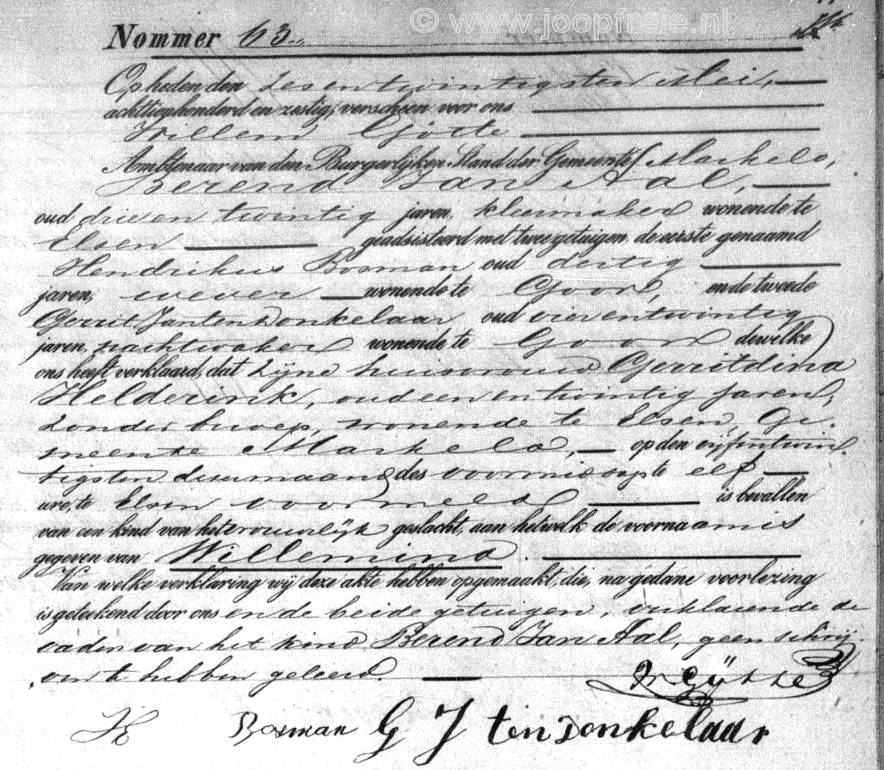 © www.joopfreie.nl
Nommer 63.
Op heden den zesentwintigsten Mei,
achttienhonderd en zestig, verscheen voor ons
Willem
Ambtenaar van den Burgerlijken Stand der Gemeente Markelo,
Berend Jan Aal,
oud drieentwintig jaren, kleermaker wonende te
Elsen geadsisteerd met twee getuigen, de eerste genaamd
Hendrikus Bosman, oud dertig
jaren, wever wonende te Goor, en de tweede
Gerrit Jan ten Donkelaar oud vierentwintig
jaren, nachtwaker wonende te Goor dewelke
ons heeft verklaard, dat zijne huisvrouw Gerritdina
Helderink, oud eenentwintig jaren,
zonder beroep, wonende te Elsen, Ge-
meente Markelo, op den vijfentwin-
tigsten dezer maand des voormiddags te elf
ure, te Elsen voormeld is bevallen
van een kind van het vrouwelijk geslacht, aan hetwelk de voornaam is
gegeven van Willemina.
Van welke verklaring wij deze akte hebben opgemaakt, die, na gedane voorlezing
is geteekend door ons en de beide getuigen, verklarende de
vader van het kind, Berend Jan Aal, geen schrij-
ven te hebben geleerd.
H Bosman G J ten Donkelaar